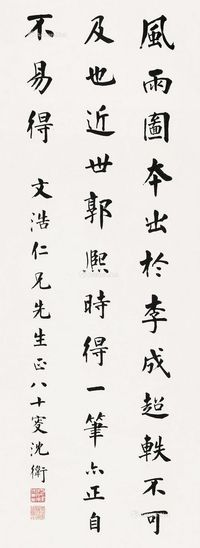 風雨圖本出於李成超軼不可
及也近世郭熙時得一筆亦正自
不易得
文浩仁兄先生正八十叟沈衛